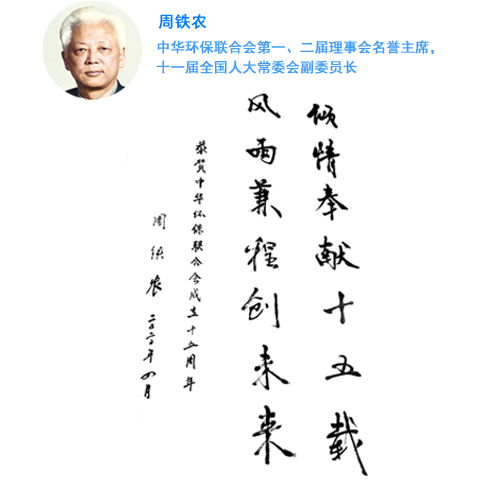 周铁农
中华环保联合会第一、二届理事会名誉主席，
十一届全国人大常委会副委员长
倾情奉献十五载
风雨兼程创未来
恭贺中华环保联合会成立十五周年
周铁农
二〇二〇年四月